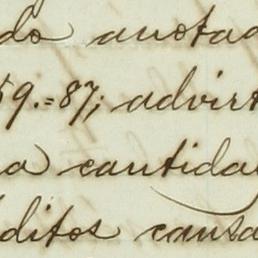 do anotad
59.=87; advirt
a cantidad
ditos causa